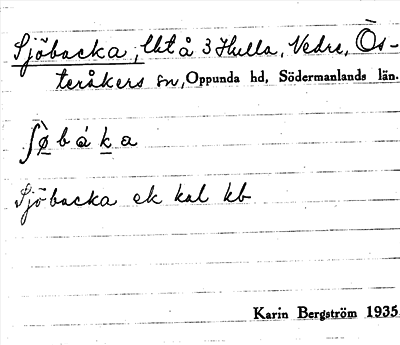 Sjöbacka, lht å 3 Hulla, Vedre, Ös-
teråkers sn, Oppunda hd, Södermanlands län.
ʃø̀báka
Sjöbacka ek kal kb
Karin Bergström 1935